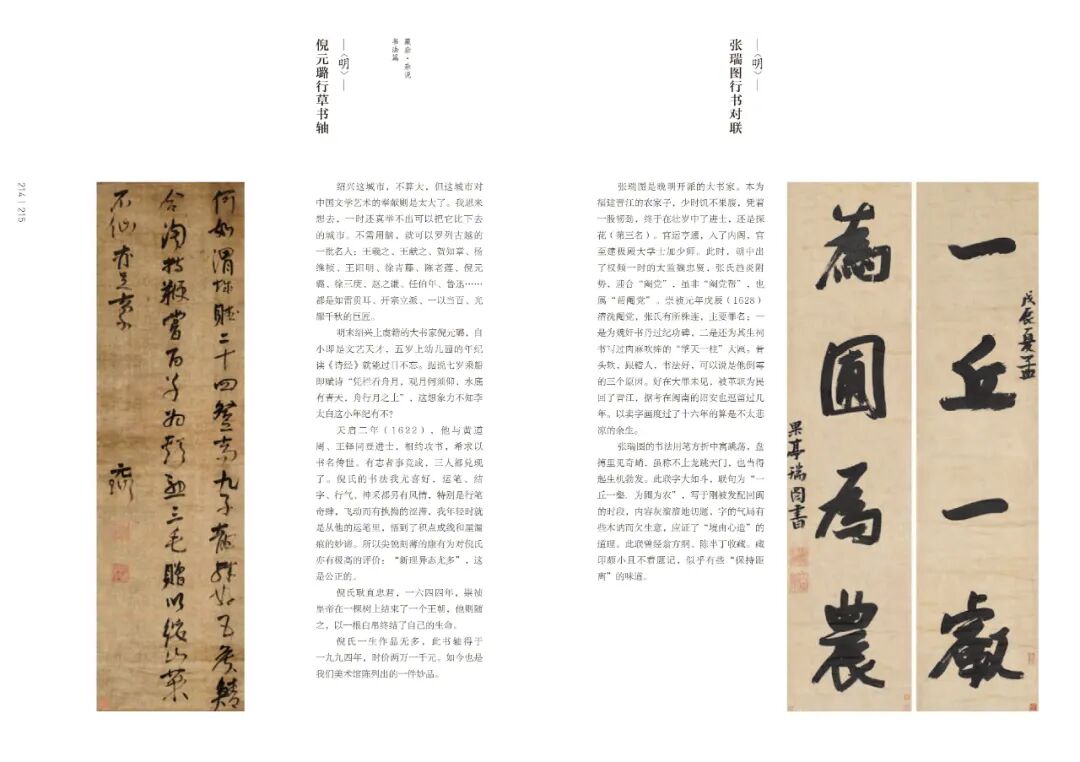 张瑞图行书对联
—〈明〉—
戊辰夏孟
一丘一壑
為圃為農
果亭瑞图書
张瑞图是晚明开派的大书家。本为
福建晋江的农家子，少时饥不果腹，凭着
一股韧劲，终于在壮岁中了进士，还是探
花（第三名）。官运亨通，入了内阁，官
至建极殿大学士加少师。此时，朝中出
了权倾一时的大监魏忠贤，张氏趋炎附
势，迎合“阉党”，虽非“阉党帮”，也
属“谄阉党”。崇祯元年戊辰（1628）
清洗阉党，张氏有所株连，主要罪名：一
是为魏奸书丹过纪功碑，二是还为其生祠
书写过肉麻吹捧的“擎天一柱”大匾。骨
头软，跟错人，书法好，可以说是他倒霉
的三个原因。好在大罪未见，被革职为民
回了晋江，据考在闽南的诏安也逗留过几
年。以卖字画度过了十六年的算是不太悲
凉的余生。
张瑞图的书法用笔方折中寓跳荡，盘
搏里见奇峭，虽称不上龙跳天门，也当得
起生机勃发。此联字大如斗，联句为“一
丘一壑，为圃为农”，写于刚被发配回闽
的时段，内容灰溜溜地切题，字的气局有
些木讷而欠生意，应证了“境由心造”的
道理。此联曾经翁方纲、陈半丁收藏。藏
印颇小且不着题记，似乎有些“保持
距离”的味道。
藏余·杂说
书法篇
—〈明〉—
倪元璐行草书轴
绍兴这城市，不算大，但这城市对
中国文学艺术的奉献则是太大了。我思来
想去，一时还真举不出可以把它比下去
的城市。不需用脑，就可以罗列古越的
一批名人：王羲之、王献之、贺知章、杨
维桢、王阳明、徐青藤、陈老莲、倪元
璐、徐三庚、赵之谦、任伯年、鲁迅……
都是如雷贯耳、开宗立派、一以当百、光
耀千秋的巨匠。
明末绍兴上虞籍的大书家倪元璐，自
小即是文艺天才，五岁上幼儿园的年纪
读《诗经》就能过目不忘。据说七岁乘船
即赋诗“凭栏看舟月，观月何须仰，水底
有青天，舟行月之上”，这想象力不知李
太白这小年纪有不？
天启二年（1622），他与黄道
周、王铎同登进士，相约攻书，希求以
书名传世。有志者事竟成，三人都兑现
了。倪氏的书法我尤喜好，运笔、结
字、行气、神采都另有风情，特别是行笔
奇肆，飞动而有执拗的涩滞，我年轻时就
是从他的运笔里，悟到了积点成线和屋漏
痕的妙谛。所以尖锐刻薄的康有为对倪氏
亦有极高的评价：“新理异态尤多”，这
是公正的。
倪氏耿直忠君，一六四四年，崇祯
皇帝在一棵树上结束了一个王朝，他则随
之，以一根白帛终结了自己的生命。
倪氏一生作品无多，此书轴得于
一九九四年，时价两万一千元。如今也是
我们美术馆陈列出的一件妙品。
何如渭 二十四 高九子
合 鞭當 子为 三毛贈以
不仙
214 | 215